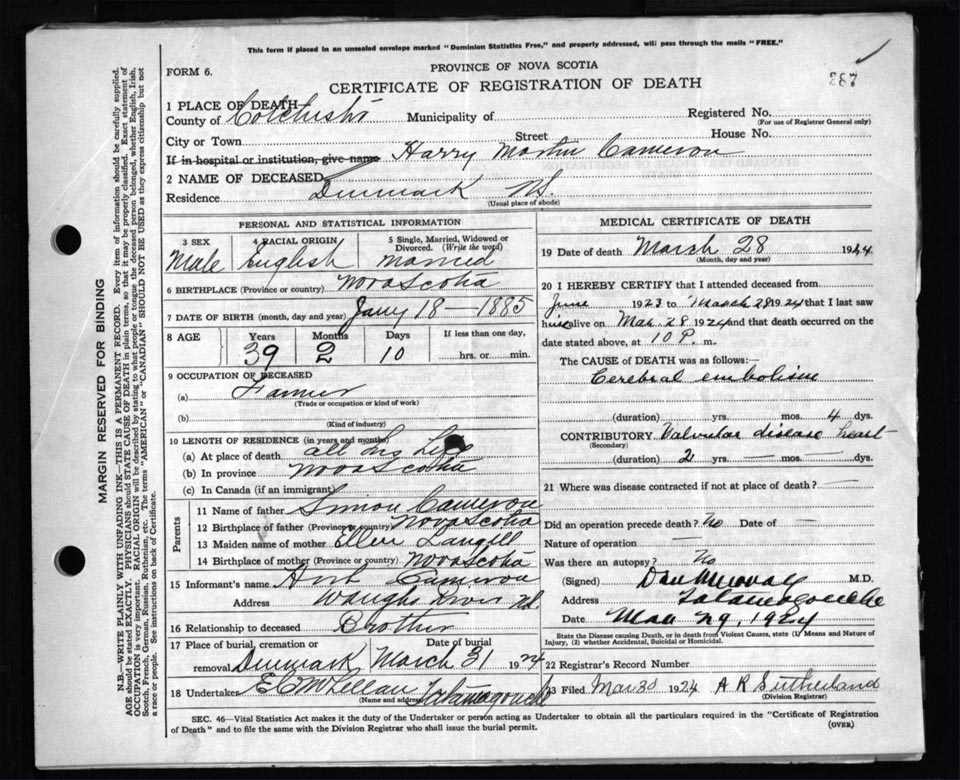 This form if placed in an unsealed envelope marked "Dominion Statistics Free," and properly addressed, will pass through the mails "FREE."
FORM 6.
PROVINCE OF NOVA SCOTIA
CERTIFICATE OF REGISTRATION OF DEATH
287
1 PLACE OF DEATH
County of Colchester Municipality of Registered No.
(For use of Registrar General only)
City or Town Street House No.
If in hospital or institution, give name Harry Martin Cameron
2 NAME OF DECEASED
Residence Denmark N.S.
(Usual place of abode)
PERSONAL AND STATISTICAL INFORMATION
3 SEX Male
4 RACIAL ORIGIN English
5 Single, Married, Widowed or Divorced. (Write the word) Married
6 BIRTHPLACE (Province or country) Nova Scotia
7 DATE OF BIRTH (month, day and year) Jany 18 - 1885
8 AGE Years Months Days If less than one day,
39 2 10 hrs. or min.
9 OCCUPATION OF DECEASED
(a) Farmer
(Trade or occupation or kind of work)
(b)
(Kind of industry)
10 LENGTH OF RESIDENCE (in years and months)
(a) At place of death all his Life
(b) In province Nova Scotia
(c) In Canada (if an immigrant)
Parents
11 Name of father Simon Cameron
12 Birthplace of father (Province or country) Nova Scotia
13 Maiden name of mother Ellen Langill
14 Birthplace of mother (Province or country) Nova Scotia
15 Informant's name Cameron
Address Waughs River N.S.
16 Relationship to deceased Brother
17 Place of burial, cremation or removal Date of burial
Denmark March 31 1924
18 Undertaker E C McLellan Tatamagouche
(Name and address)
MEDICAL CERTIFICATE OF DEATH
19 Date of death March 28 1924
(Month, day and year)
20 I HEREBY CERTIFY that I attended deceased from
June 1923 to March 28 1924 that I last saw
him alive on Mar 28 1924 and that death occurred on the
date stated above, at 10 P. m.
The CAUSE OF DEATH was as follows:—
Cerebral embolism
(duration) yrs. mos. 4 dys.
CONTRIBUTORY Valvular disease heart
(Secondary)
(duration) 2 yrs. — mos. — dys.
21 Where was disease contracted if not at place of death? —
Did an operation precede death? No Date of —
Nature of operation —
Was there an autopsy? No
(Signed) Dan M.D.
Address Tatamagouche
Date Mar 29, 1924
State the Disease causing Death, or in death from Violent Causes, state (1) Means and Nature of Injury, (2) whether Accidental, Suicidal or Homicidal.
22 Registrar's Record Number
23 Filed Mar 30 1924 A R Sutherland
(Division Registrar)
SEC. 46—Vital Statistics Act makes it the duty of the Undertaker or person acting as Undertaker to obtain all the particulars required in the "Certificate of Registration
of Death" and to file the same with the Division Registrar who shall issue the burial permit.
(OVER)
MARGIN RESERVED FOR BINDING
N.B.—WRITE PLAINLY WITH UNFADING INK—THIS IS A PERMANENT RECORD. Every item of information should be carefully supplied.
AGE should be stated EXACTLY. PHYSICIANS should STATE CAUSE OF DEATH in plain terms, so that it may be properly classified. Exact statement of
OCCUPATION is very important. RACIAL ORIGIN will be described by stating to what people or tongue the deceased person belonged, whether English, Irish,
Scotch, French, German, Russian, Ruthenian, etc. The terms "AMERICAN" or "CANADIAN" SHOULD NOT BE USED as they express citizenship but not
a race or people. See instructions on back of Certificate.